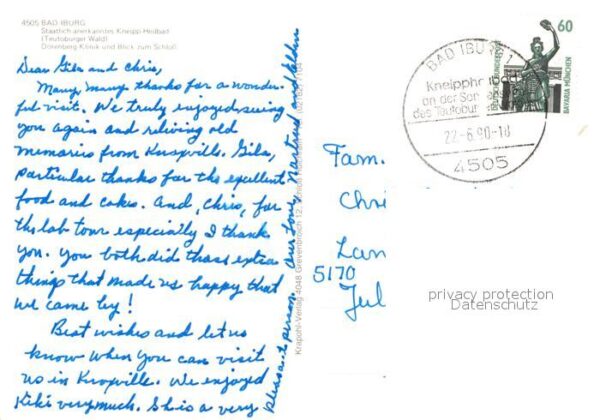 4505 BAD IBURG
Staatlich anerkanntes Kneipp-Heilbad
(Teutoburger Wald)
Dörenberg Klinik und Blick zum Schloß
Dear Gila and Chris,
Many, many thanks for a wonder-
ful visit. We truly enjoyed seeing
you again and reliving old
memories from Knoxville. Gila,
particular thanks for the excellent
food and cakes. And, Chris, for
the lab tour especially I thank
you. You both did those extra
things that made us happy that
we came by!
Best wishes and let us
know when you can visit
us in Knoxville. We enjoyed
Kiki very much. She is a very
pleasant person. Our love,
Krapohl-Verlag 4048 Grevenbroich 12
60
DEUTSCHE BUNDESPOST
BAVARIA MÜNCHEN
BAD IBURG 1
Kneipp
an der
des Teutobur
22-6.90-18
4505
Fam.
Chri
Lan
5170
Jul
privacy protection
Datenschutz